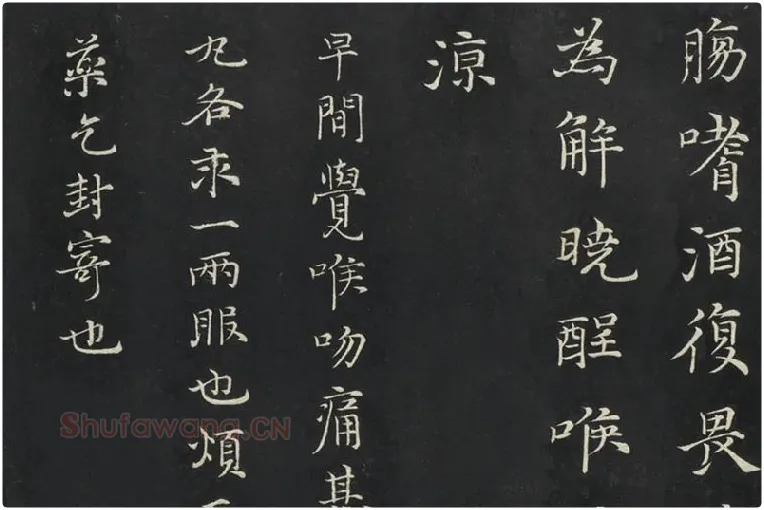 膓嗜酒復畏
為解曉酲喉
涼
早間覺喉吻痛其
丸各求一兩服也煩
藥乞封寄也
Shufawang.CN